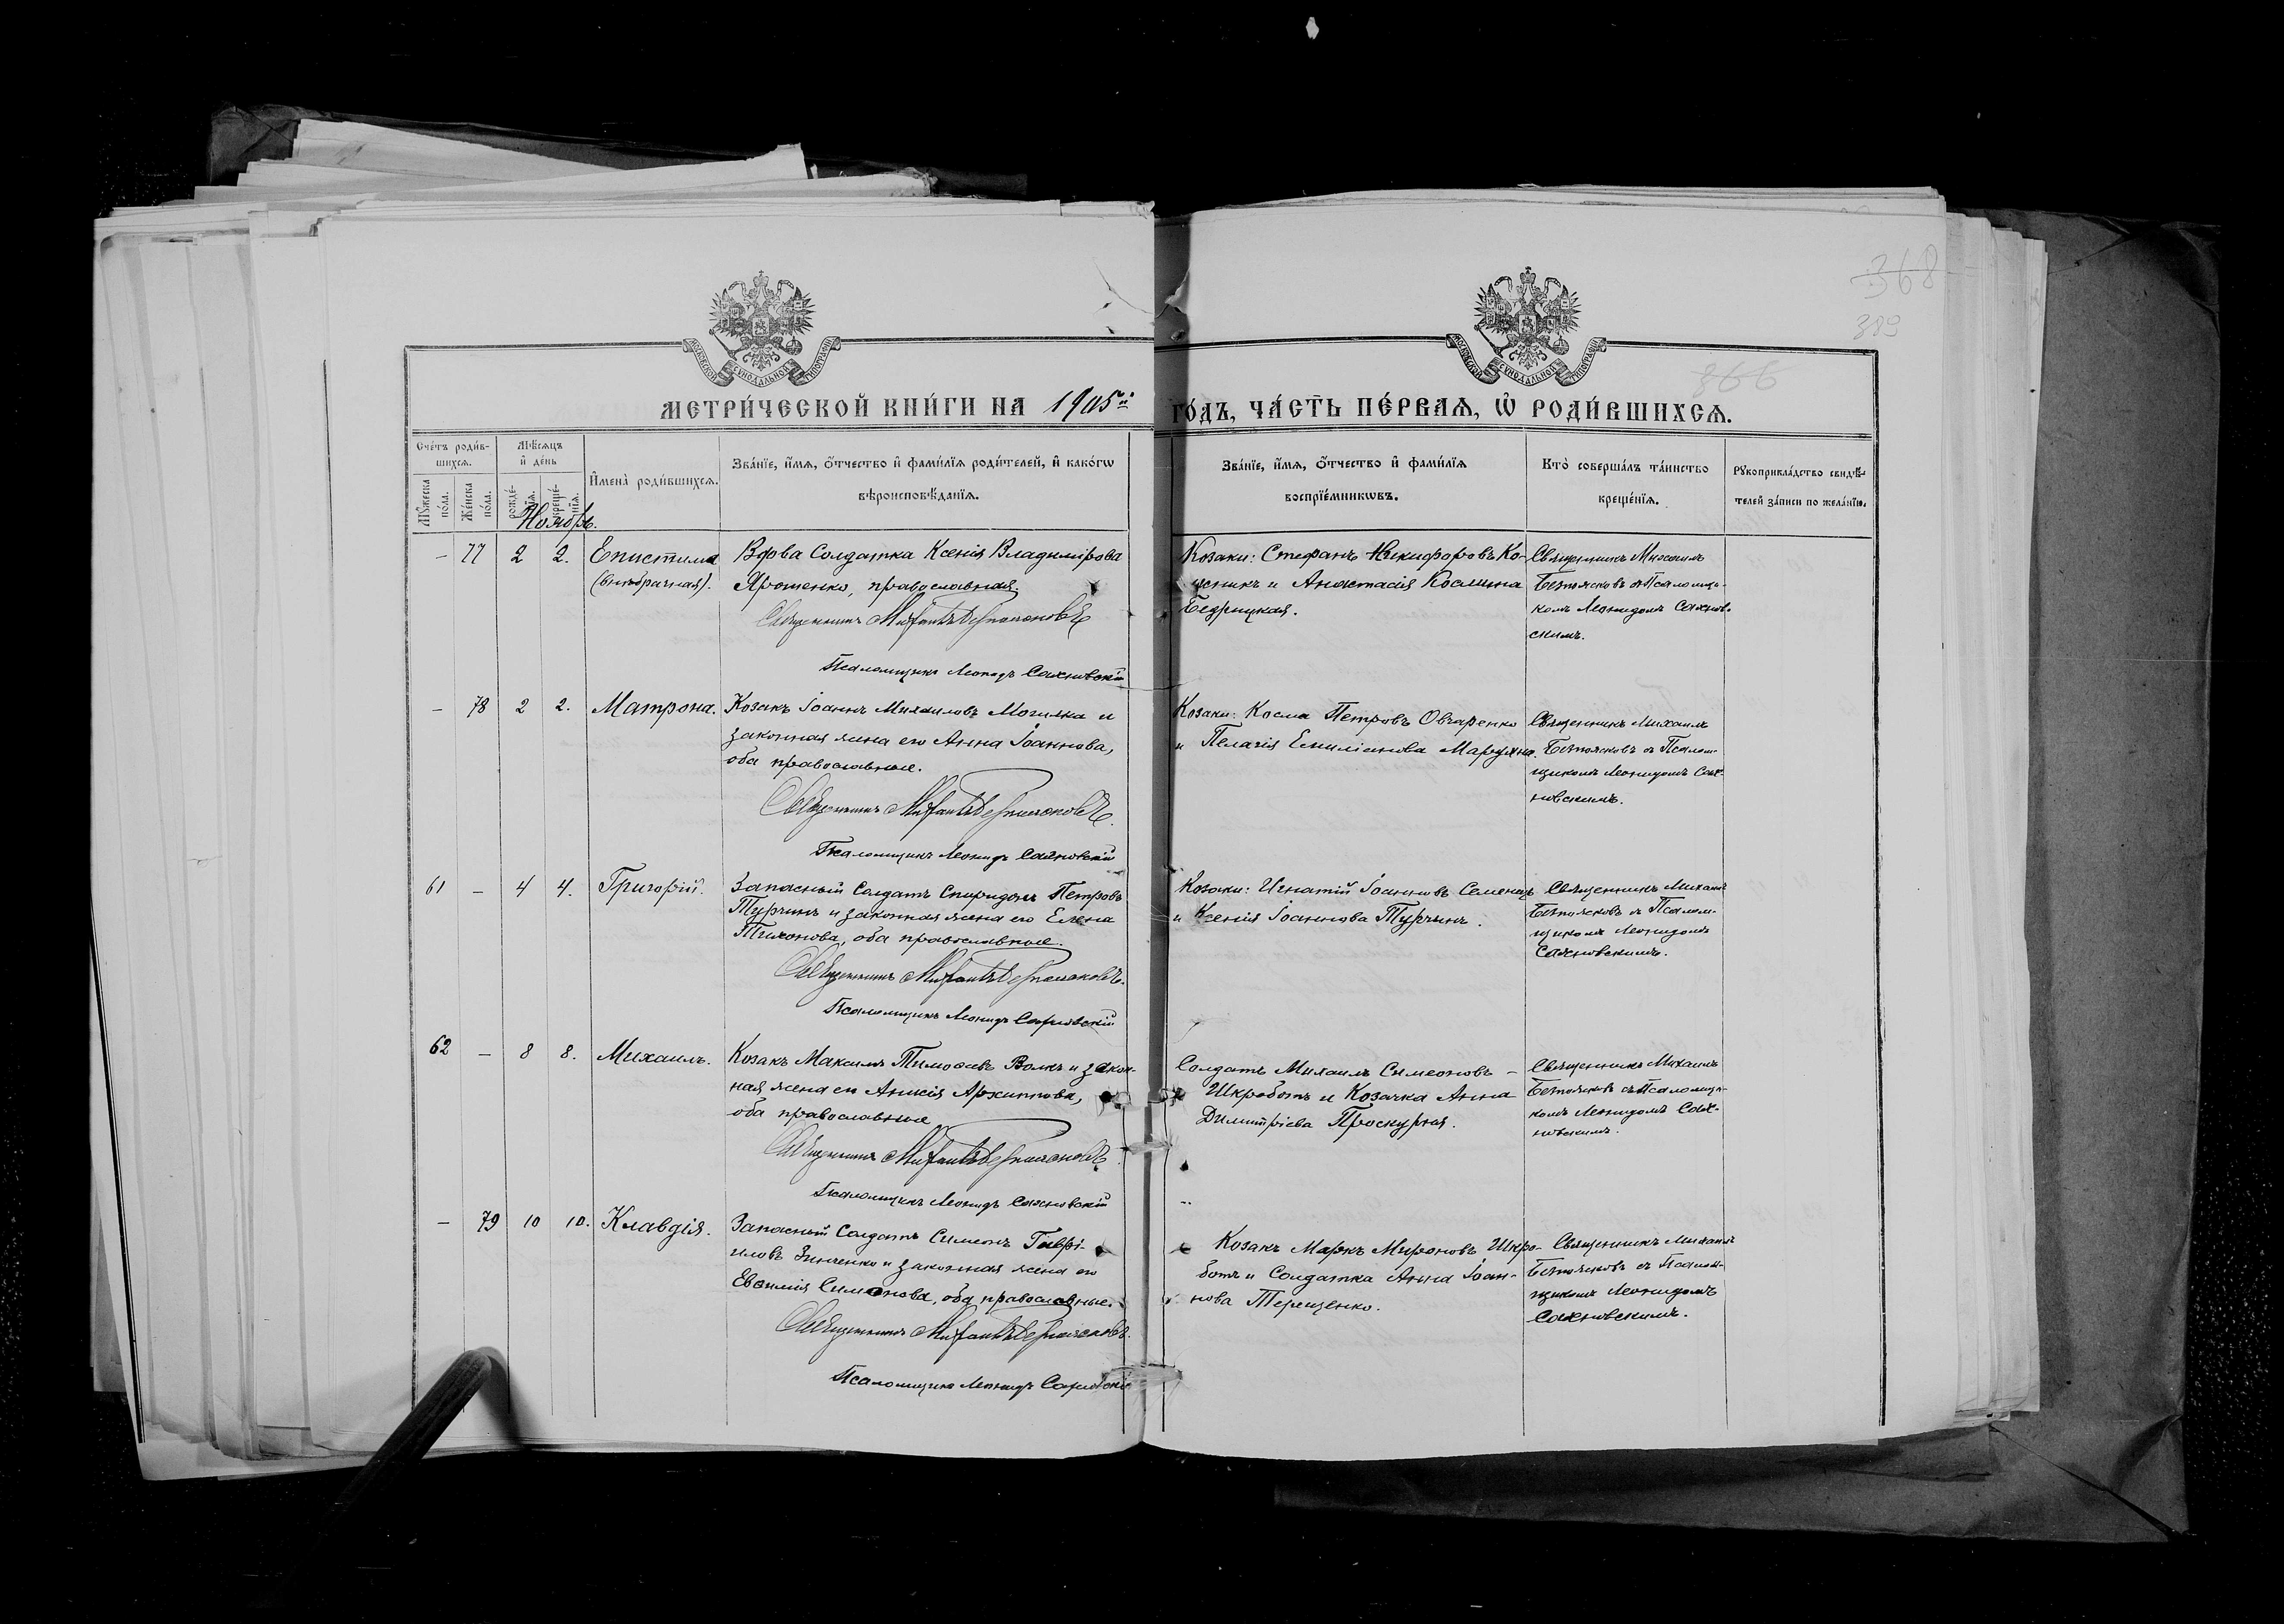 368
389
366
МОСКОВСКОЙ СѴНОДАЛЬНОЙ ТИПОГРАФІИ
МОСКОВСКОЙ СѴНОДАЛЬНОЙ ТИПОГРАФІИ
МЕТРИ́ЧЕСКОЙ КНИ́ГИ НА 1905й ГО́ДЪ, ЧА́СТЬ ПЕ́РВАѦ, Ѽ РОДИ́ВШИХСѦ.
Сче́тъ роди́в-
шихсѧ.
Мѣ́сѧцъ
и҆ де́нь
И҆мена̀ роди́вшихсѧ.
Зва́нїе, и҆́мѧ, ѻ҆́тчество и҆ фами́лїѧ роди́телей, и҆ како́гѡ
вѣроисповѣ́данїѧ.
Зва́нїе, и҆́мѧ, ѻ҆́тчество и҆ фами́лїѧ
воспрїе́мникѡвъ.
Кто̀ соверша́лъ та́инство
креще́нїѧ.
Рꙋкоприкла́дство свидѣ́-
телей за́писи по жела́нїю.
Мꙋ́жеска
по́ла.
Же́нска
по́ла.
рожде́-
нїѧ.
креще́-
нїѧ.
Ноябрь.
– 77 2 2. Епистима
(внѣбрачная).
Вдова Солдатка Ксенія Владимірова
Ярошенко, православная.
Священникъ Михаилъ
Псаломщикъ Леонидъ Сахновскій
Козаки: Стефанъ Никифоровъ Ко-
и Анастасія Косьмина
Бедрицкая.
Священникъ Михаилъ
съ Псаломщи-
комъ Леонидомъ Сахнов-
скимъ.
– 78 2 2. Матрона.
Козакъ Іоаннъ Михаиловъ Могилка и
законная жена его Анна Іоаннова,
оба православные.
Священникъ Михаилъ
Псаломщикъ Леонидъ Сахновскій
Козаки: Косма Петровъ Овчаренко
и Пелагія Емиліанова
Священникъ Михаилъ
съ Псалом-
щикомъ Леонидомъ Сах-
новскимъ.
61 – 4 4. Григорій.
Запасный Солдатъ Спиридонъ Петровъ
Турчинъ и законная жена его Елена
Тихонова, оба православные.
Священникъ Михаилъ
Псаломщикъ Леонидъ Сахновскій
Козаки: Игнатій Іоанновъ Семенецъ
и Ксенія Іоаннова Турчинъ.
Священникъ Михаилъ
съ Псалом-
щикомъ Леонидомъ
Сахновскимъ.
62 – 8 8. Михаилъ.
Козакъ Максимъ Тимоѳеевъ Волкъ и закон-
ная жена его Анисія Архиппова,
оба православные
Священникъ Михаилъ
Псаломщикъ Леонидъ Сахновскій
Солдатъ Михаилъ Симеоновъ –
Шкроботъ и Козачка Анна
Димитріева Проскурня.
Священникъ Михаилъ
съ Псаломщи-
комъ Леонидомъ Сах-
новскимъ.
– 79 10 10. Клавдія.
Запасный Солдатъ Симеонъ Гаврі-
иловъ Зинченко и законная жена его
Евѳимія Симеонова, оба православные.
Священникъ Михаилъ
Псаломщикъ Леонидъ Сахновскій
Козакъ Маркъ Мироновъ Шкро-
ботъ и Солдатка Анна Іоан-
нова Терещенко.
Священникъ Михаилъ
съ Псалом-
щикомъ Леонидомъ
Сахновскимъ.